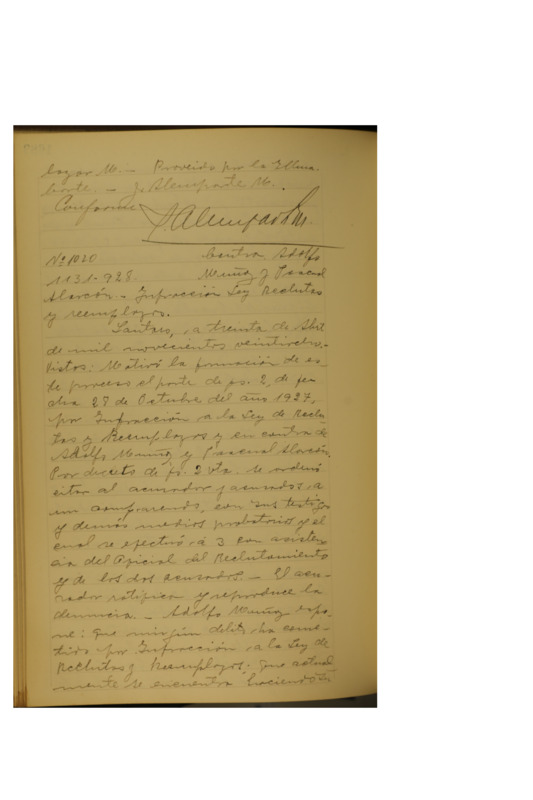 Proveido por la Iltma.
Corte. — J. Alemparte M.
Conforme
Nº 1020 Contra Adolfo
1131-928. Muñoz y Pascual
Alarcón. — Infracción Ley Reclutas
y reemplazos.
Lautaro, a treinta de Abril
de mil novecientos veintiocho.
Vistos: Motivó la formación de es-
te proceso el parte de fs. 2, de fe
cha 28 de Octubre del año 1927,
por Infracción a la Ley de Reclu
tas y Reemplazos y en contra de
Adolfo Muñoz y Pascual Alarcón.
Por decreto de fs. 2 vta. se ordenó
citar al acusador y acusados, a
un comparendo, con sus testigos
y demás medios probatorios y el
cual se efectuó, a 3 con asisten
cia del Oficial del Reclutamiento
y de los dos acusados. — El acu-
sador ratifica y reproduce la
denuncia. — Adolfo Muñoz expo
ne: que ningún delito ha come-
tido por Infracción a la Ley de
Reclutas y Reemplazos; que actual
mente se encuentra haciendo su